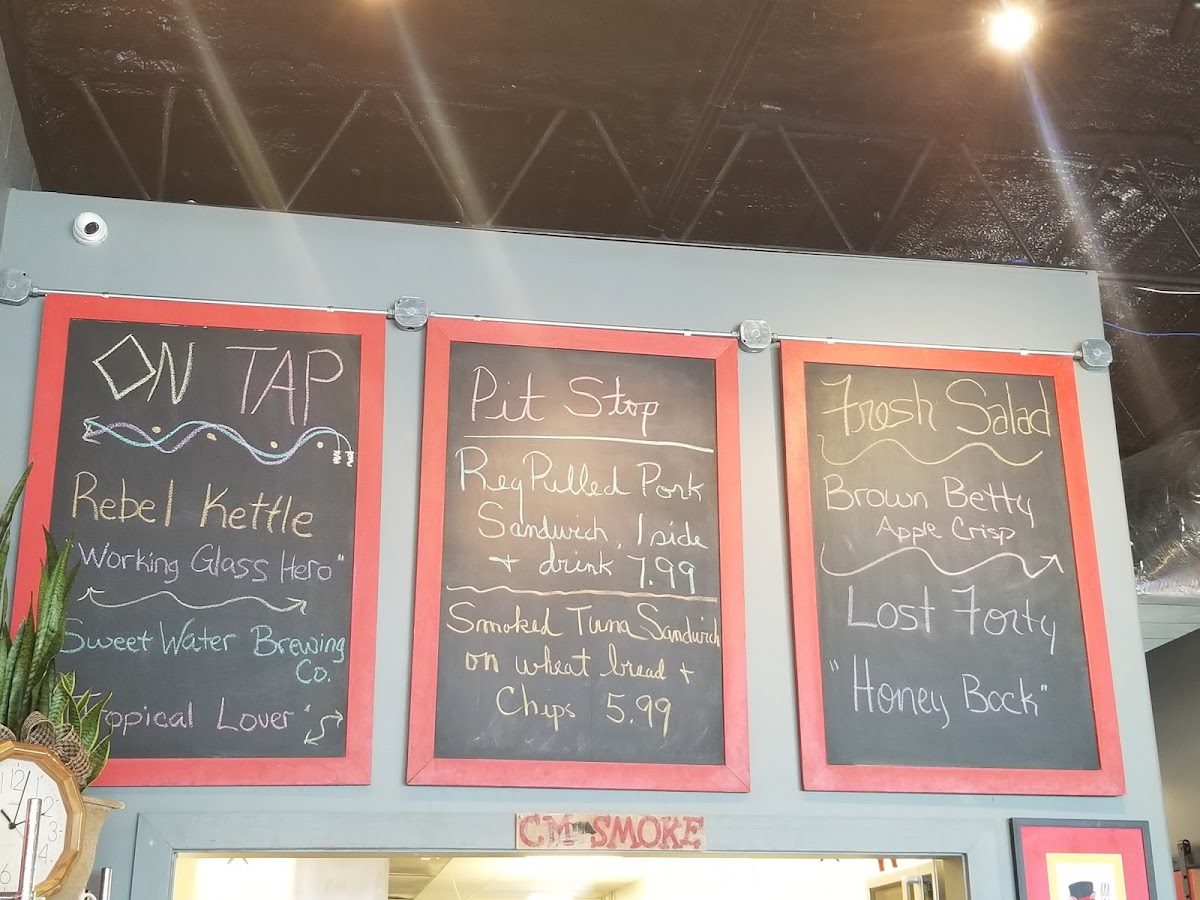 ON TAP
Rebel Kettle
"Working Glass Hero"
Sweet Water Brewing
Co.
Tropical Lover"
Pit Stop
Reg Pulled Pork
Sandwich, 1 side
+ drink 7.99
Smoked Tuna Sandwich
on wheat bread +
Chips 5.99
Fresh Salad
Brown Betty
Apple Crisp
Lost Forty
"Honey Bock"
CM SMOKE
12
2
3
4
6